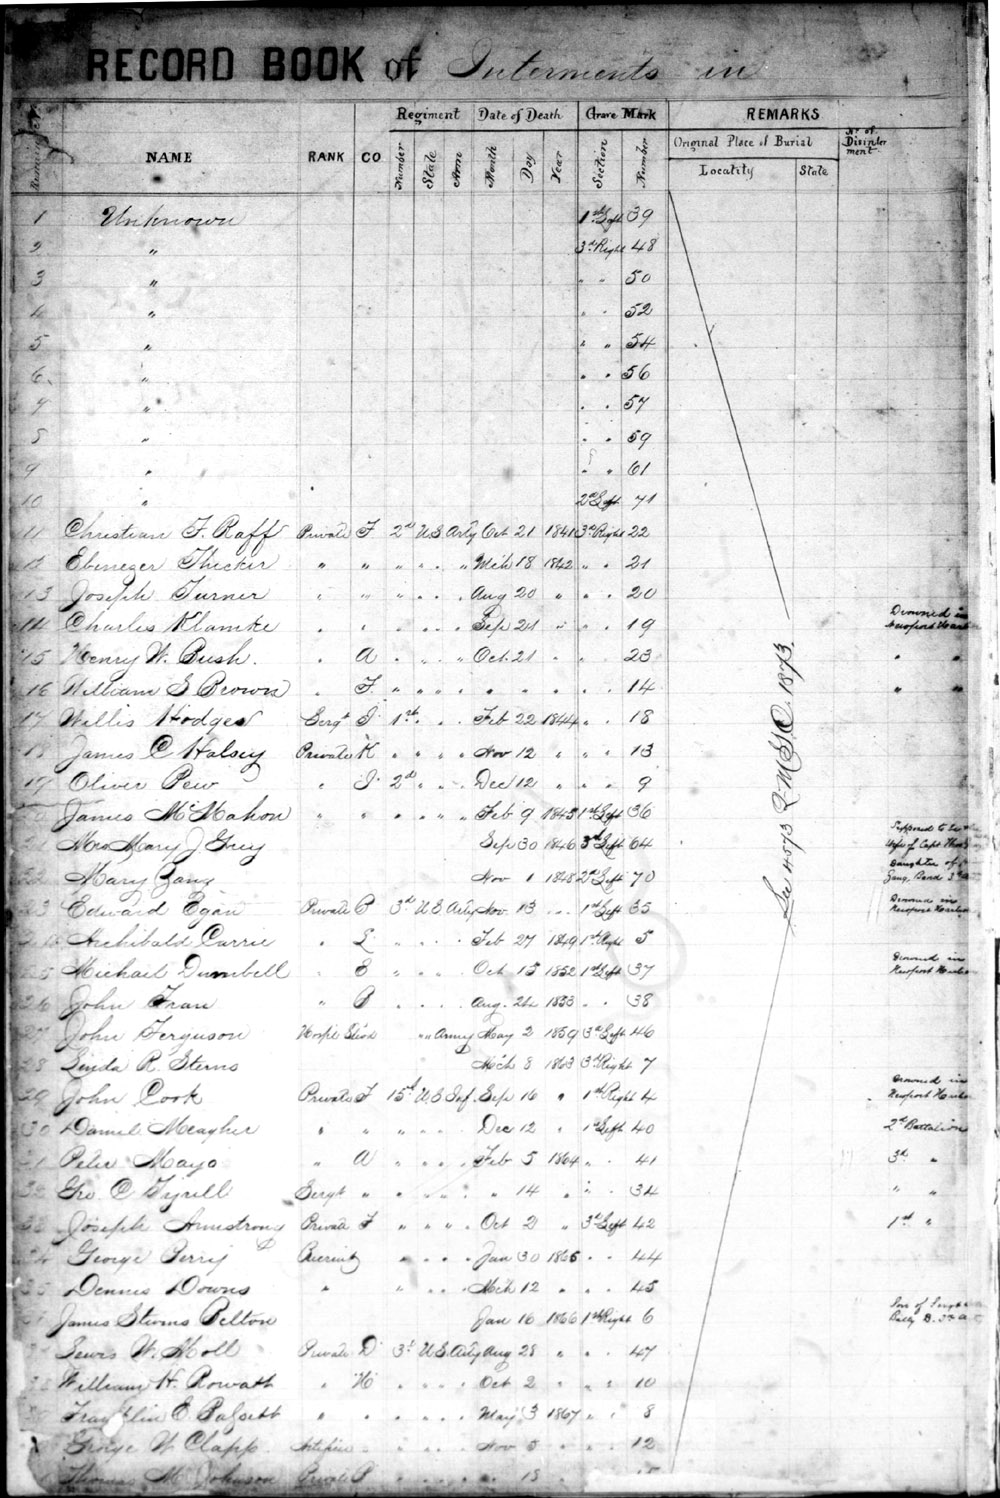 RECORD BOOK of Interments in
Regiment Date of Death Grave Mark REMARKS
NAME RANK CO Number State Arm Month Day Year Section Number Original Place of Burial Nº of Disinterment.
Locality State
1 Unknown 1st Left 39
2 " 3d Right 48
3 " " " 50
4 " " " 52
5 " " " 54
6 " " " 56
7 " " " 57
8 " " " 59
9 " " " 61
10 " 2d Left 71
11 Christian F. Raff Private F 2nd U S Arty Oct 21 1841 3d Right 22
12 Ebenezer Thicker " " " " " Mch 18 1842 " " 21
13 Joseph Turner " " " " " Aug 20 " " " 20
14 Charles Klamke " " " " " Sep 21 " " " 19 Drowned in Newport
15 Henry W. Bush. " A " " " Oct. 21 " " " 23 " "
16 William S Brown " F " " " " " " " " 14 " "
17 Willis Hodges Sergt I 1st " " Feb 22 1844 " " 18
18 James C Halsey Private K " " " Nov 12 " " " 13
19 Oliver Pew " I 2d " " Dec 12 " " " 9
20 James McMahon " " " " " Feb 9 1845 1st Left 36
21 Mrs Mary J Grey Sep 30 1846 3d Left 64 Supposed to be Wife of Capt
22 Mary Zang Nov 1 1848 2d Left 70 Daughter of Zang, Band
23 Edward Egan Private B 3d U S Arty Nov. 13 " 1st Left 35 Drowned in Newport
24 Archibald Currie " L " " " Feb 27 1849 1st Right 5
25 Michael Dumbell " E " " " Oct 15 1852 1st Left 37 Drowned in Newport
26 John Fran " B " " " Aug. 1853 " " 38
27 John Ferguson Hospl " " Army May 2 1859 3d Left 46
28 Linda R. Sterns Mch 8 1863 3d Right 7
29 John Cook Private F 15th U S Inf. Sep 16 " 1st Right 4 Drowned in Newport
30 Daniel Meagher " " " " " Dec 12 " 1st Left 40 2d Battalion
31 Peter Mayo " A " " " Feb 5 1864 " " 41 3d "
32 Geo. C Tyrell Sergt " " " " " 14 " " " 34 " "
33 Joseph Armstrong Private F " " " Oct 2 " 3d Left 42 1st "
34 George Perry Recruit " " " Jan 30 1865 " " 44
35 Dennis Downs " " " " Mch 12 " " " 45
36 James Stevens Belton Jan 16 1866 1st Right 6 Son of
37 Lewis W. Holl Private D 3d U S Arty Aug 28 " " " 47
38 William H. Rowatt " H " " " Oct 2 " " " 10
39 Franklin E Bassett " " " " " May 3 1867 " " 8
George W Clapp. " " " " Nov 5 " " " 12
Thomas M Johnson Private B " " " " 18 " " " 15
See 4573 Q.M.G.O. 1873.